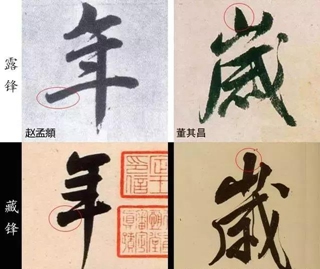 露锋
年
赵孟頫
歲
董其昌
藏锋
年
歲